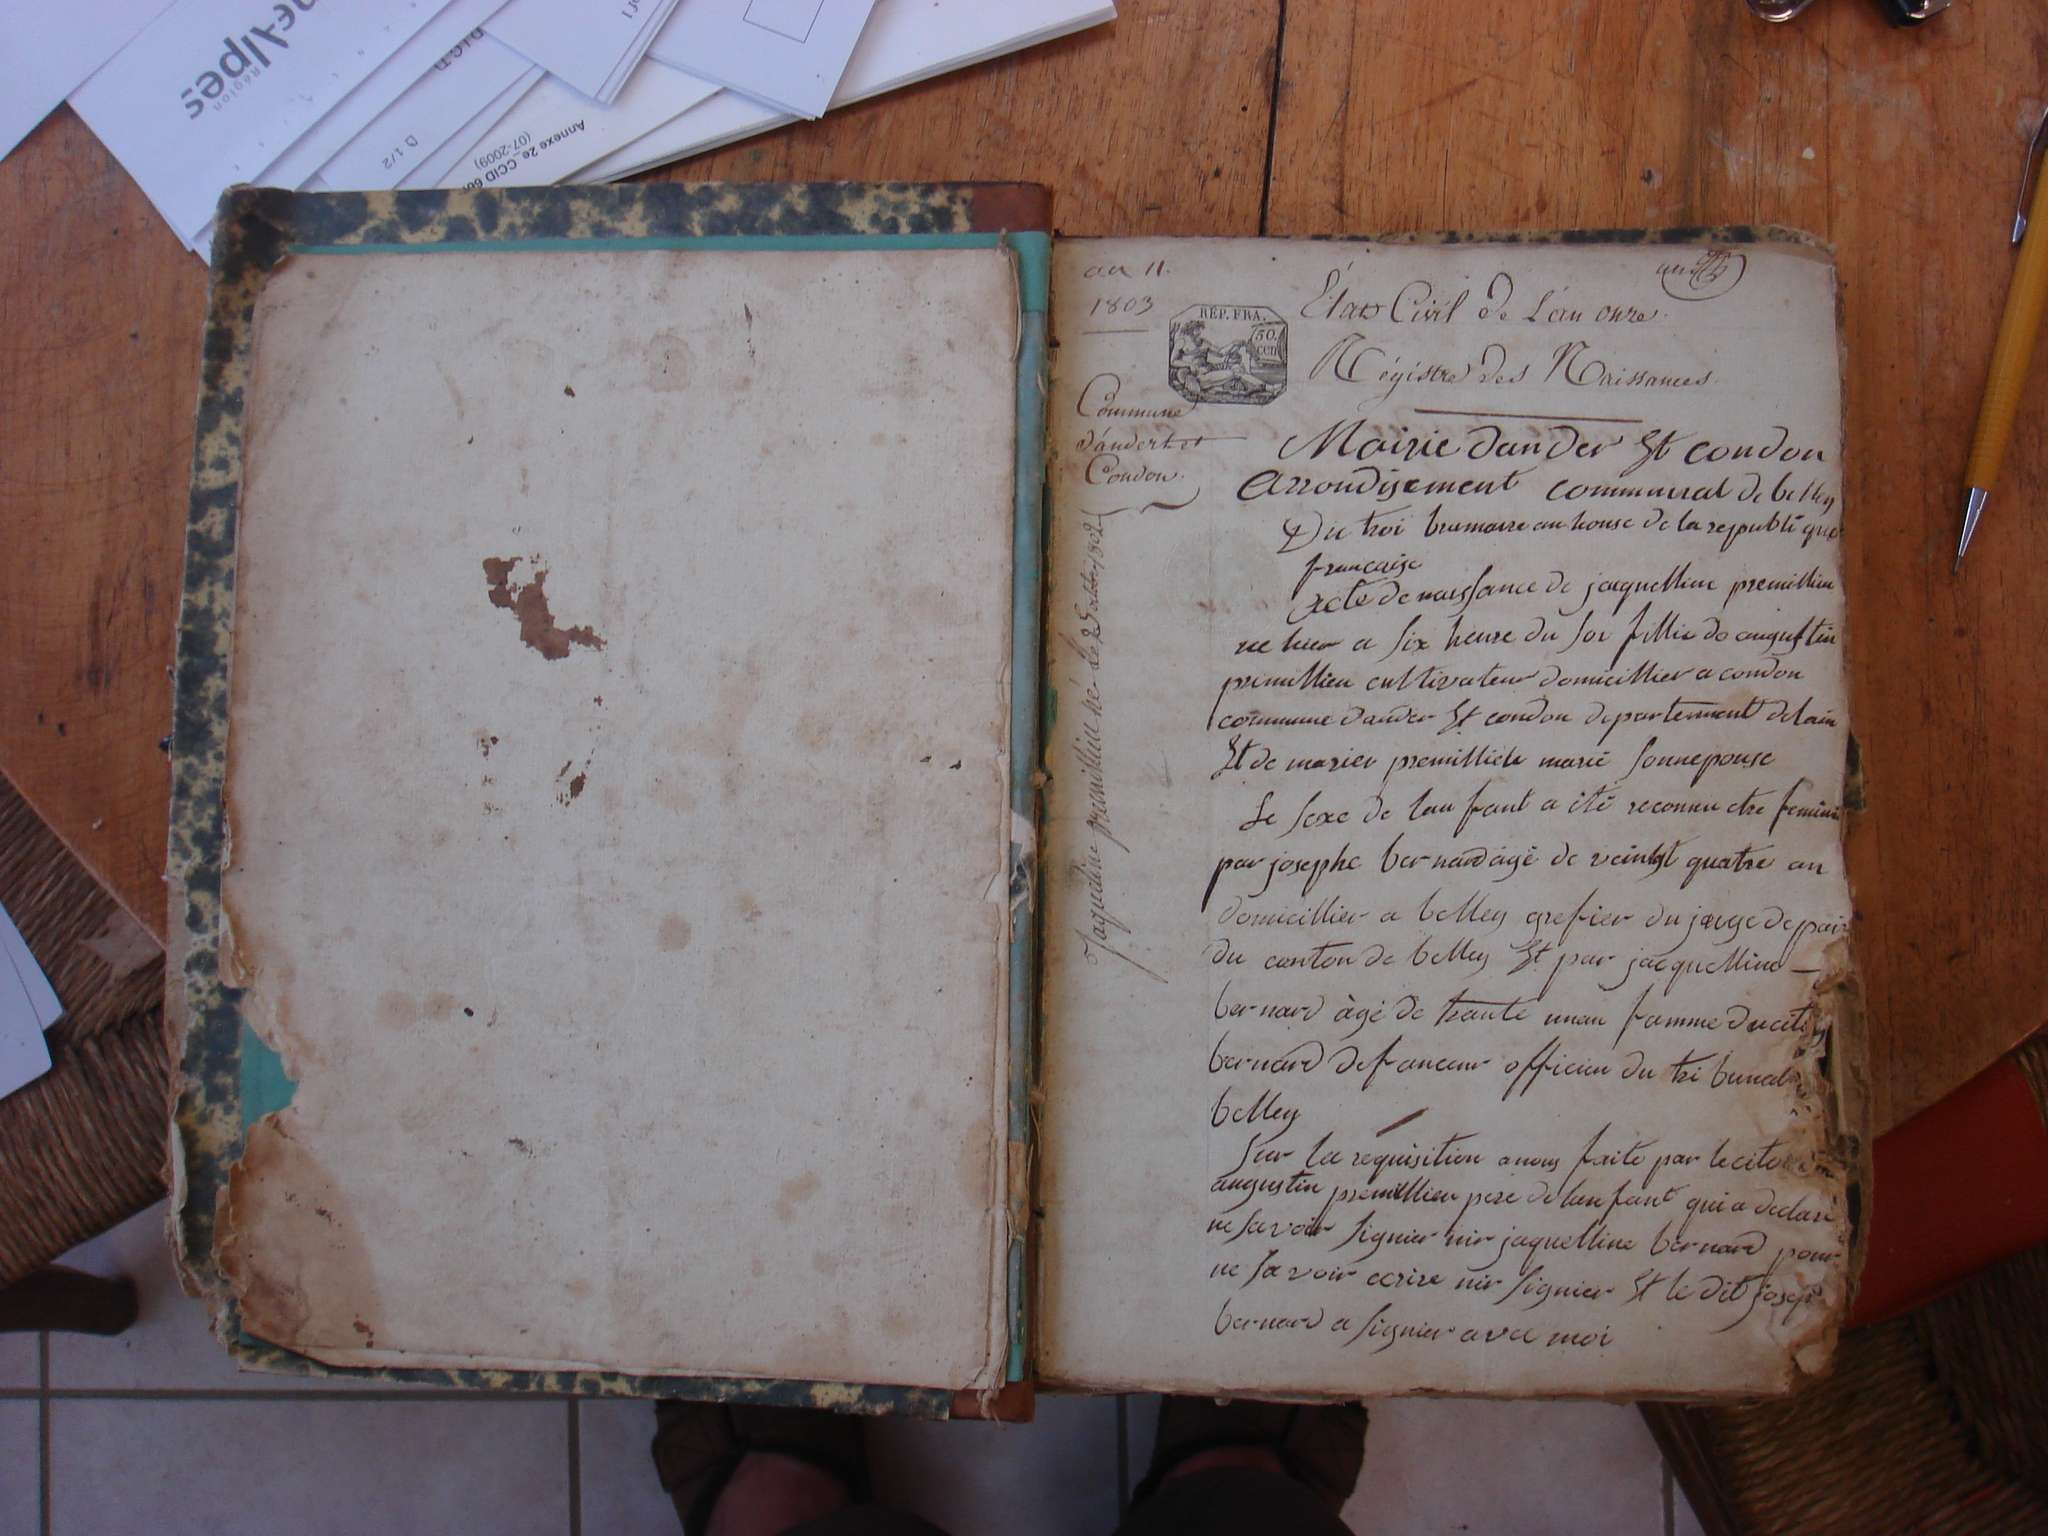 ne-Alpes
Région
D 1/2
Annexe 2e_CCID
(07-2009)
an 11.
1803
RÉP. FRA.
50.
cen
États Civil de L'an onze.
Régistre des Naissances.
Commune
d'andert et
Condon.
Jaqueline premillieu né le 25 octobre 1802
Mairie dander Et condon
Arrondisement communal de belley
Du troi brumaire an honse de la republi que
francaise
Acte de naissance de jaquelline premillieu
ne hier a six heure du soi fillie do augustin
primillieu cultivateur domicillier a condon
commune dander Et condon departement delain
Et de marier premillieu marié sonnepouse
Le sexe de lan fant a été reconnu etre feminin
par josephe bernard agé de veintgt quatre an
domicillier a belley grefier du jugedepaix
du canton de belley Et par jacquelline
bernard àgé de trante unan famme ducito
bernard defanceur officieu du tri bunal
belley
Sur la requisition anous faite par lecitoien
augustin premillieu pere delanfant qui a declaré
ne savoir signier nir jaquelline bernard pour
ne savoir ecrire nir signier Et le dit josep
bernard a signier avec moi